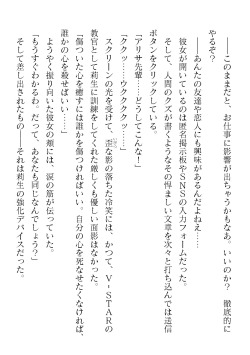 ――このままだと、お仕事に影響が出ちゃうかもなぁ。いいのか？　徹底的に
やるぞ？
――あんたの友達や恋人にも興味があるんだよねぇ……
彼女が開いているのは匿名掲示板やＳＮＳの入力フォームだった。
そして、人間のクズが書くようなその悍ましい文章を次々と打ち込んでは送信
ボタンをクリックしている。
「アリサ先輩……どうしてこんな！」
「ククッ……ウククッ……」
スクリーンの光を受けて、歪な影の落ちた冷笑には、かつて、Ｖ・ＳＴＡＲの
教官として莉生に訓練をしてくれた厳しくも優しい面影はなかった。
「傷ついた心を癒すには誰かを傷つければいい。自分の心を死なせたくなければ、
誰かの心を殺せばいい……」
ようやく振り向いた彼女の頬には、涙の筋が伝っていた。
「もうすぐわかるわ。だって――あなたも同じなんでしょう？」
そして差し出されたもの――それは莉生の強化デバイスだった。